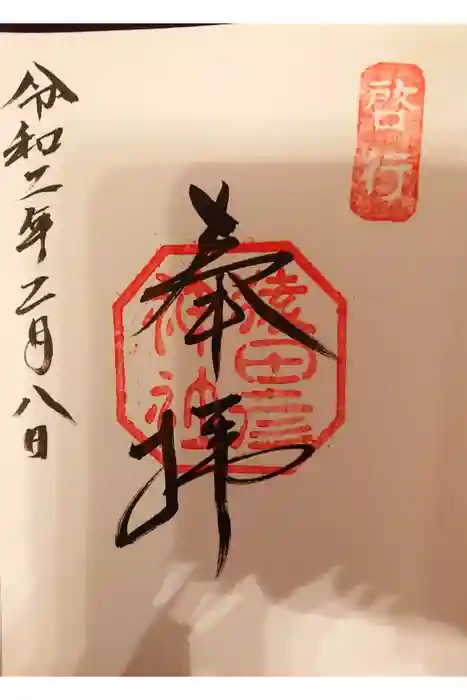 啓行
奉拝
猿田彦
神社
令和二年二月八日